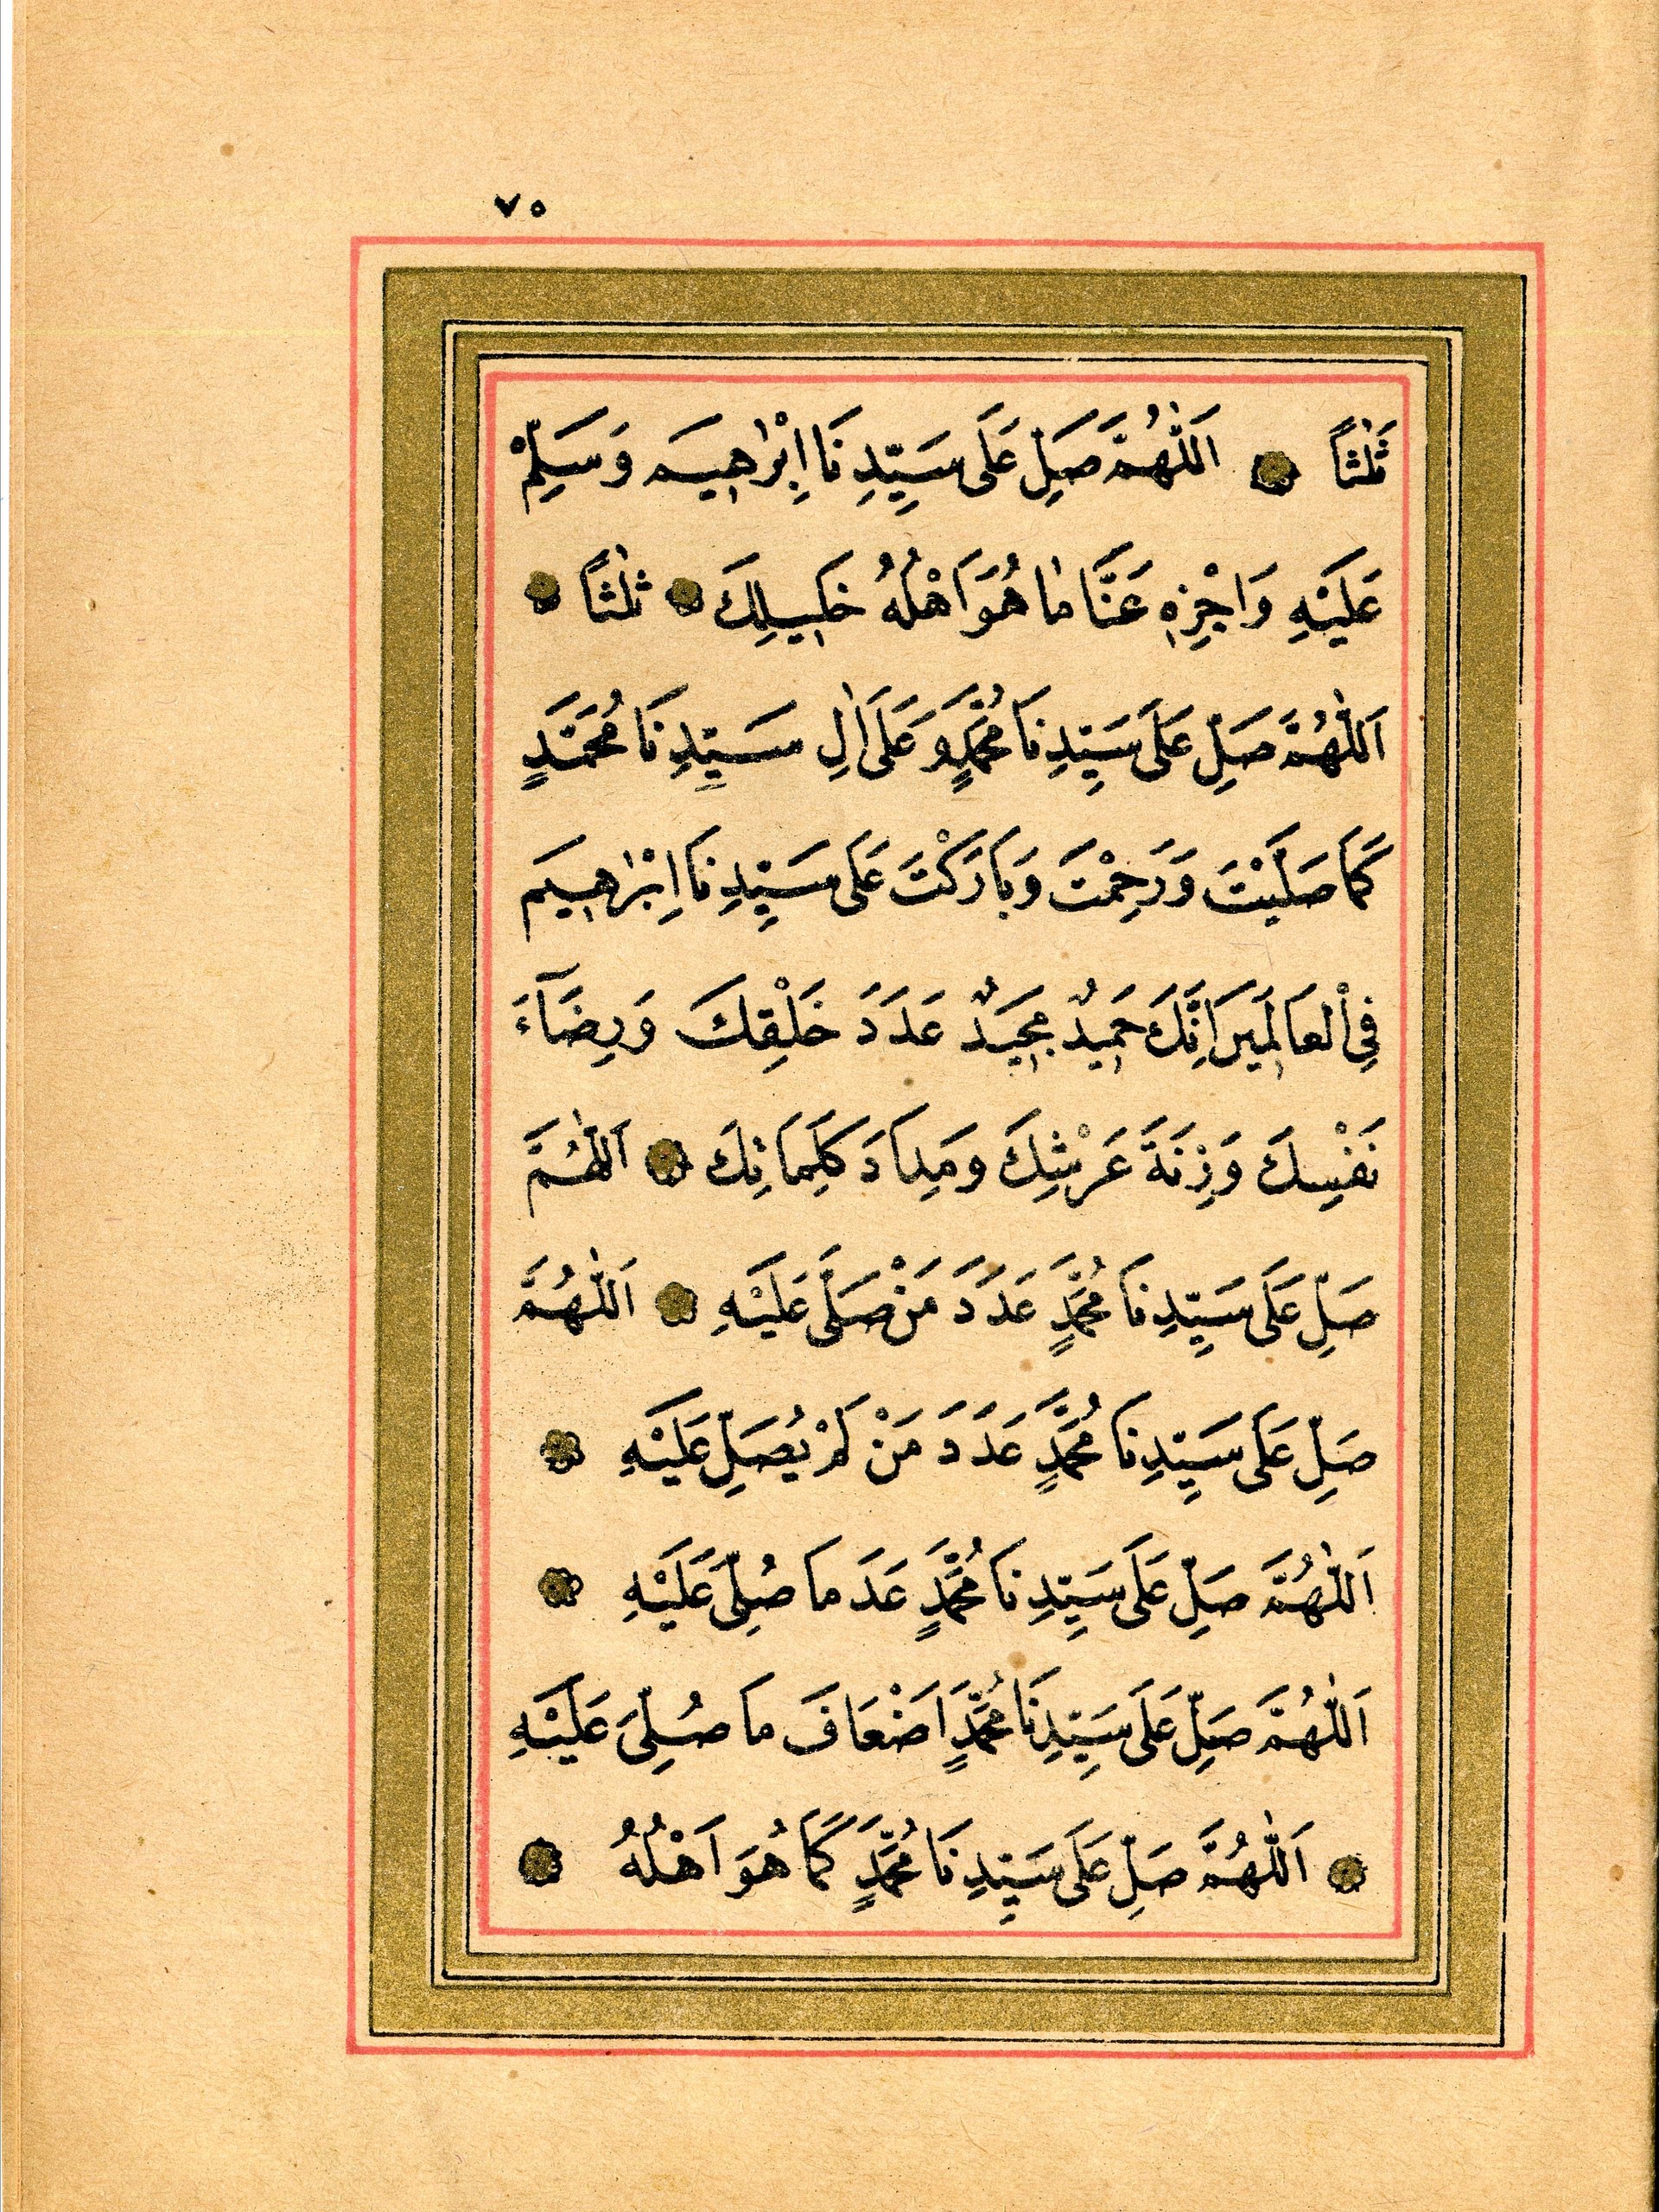 ٧٥
ثَلٰثاً ۞ اَللّٰهُمَّ صَلِّ عَلَى سَيِّدِنَا اِبْرٰهٖيمَ وَسَلِّمْ
عَلَيْهِ وَاجْزِهٖ عَنَّا مٰا هُوَ اَهْلُهُ خَلٖيلِكَ ۞ ثَلٰثاً ۞
اَللّٰهُمَّ صَلِّ عَلَى سَيِّدِنَا مُحَمَّدٍ وَعَلَى اٰلِ سَيِّدِنَا مُحَمَّدٍ
كَمَا صَلَّيْتَ وَرَحِمْتَ وَبَارَكْتَ عَلَى سَيِّدِنَا اِبْرٰهٖيمَ
فِى الْعَالَمٖينَ اِنَّكَ حَمٖيدٌ مَجٖيدٌ عَدَدَ خَلْقِكَ وَرِضَآءَ
نَفْسِكَ وَزِنَةَ عَرْشِكَ وَمِدَادَ كَلِمَاتِكَ ۞ اَللّٰهُمَّ
صَلِّ عَلَى سَيِّدِنَا مُحَمَّدٍ عَدَدَ مَنْ صَلَّى عَلَيْهِ ۞ اَللّٰهُمَّ
صَلِّ عَلَى سَيِّدِنَا مُحَمَّدٍ عَدَدَ مَنْ لَمْ يُصَلِّ عَلَيْهِ ۞
اَللّٰهُمَّ صَلِّ عَلَى سَيِّدِنَا مُحَمَّدٍ عَدَ مَا صُلِّىَ عَلَيْهِ ۞
اَللّٰهُمَّ صَلِّ عَلَى سَيِّدِنَا مُحَمَّدٍ اَضْعَافَ مَا صُلِّىَ عَلَيْهِ
۞ اَللّٰهُمَّ صَلِّ عَلَى سَيِّدِنَا مُحَمَّدٍ كَمَا هُوَ اَهْلُهُ ۞